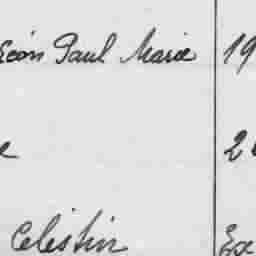 Léon Paul Marie 19
e 2
Celestin Ex